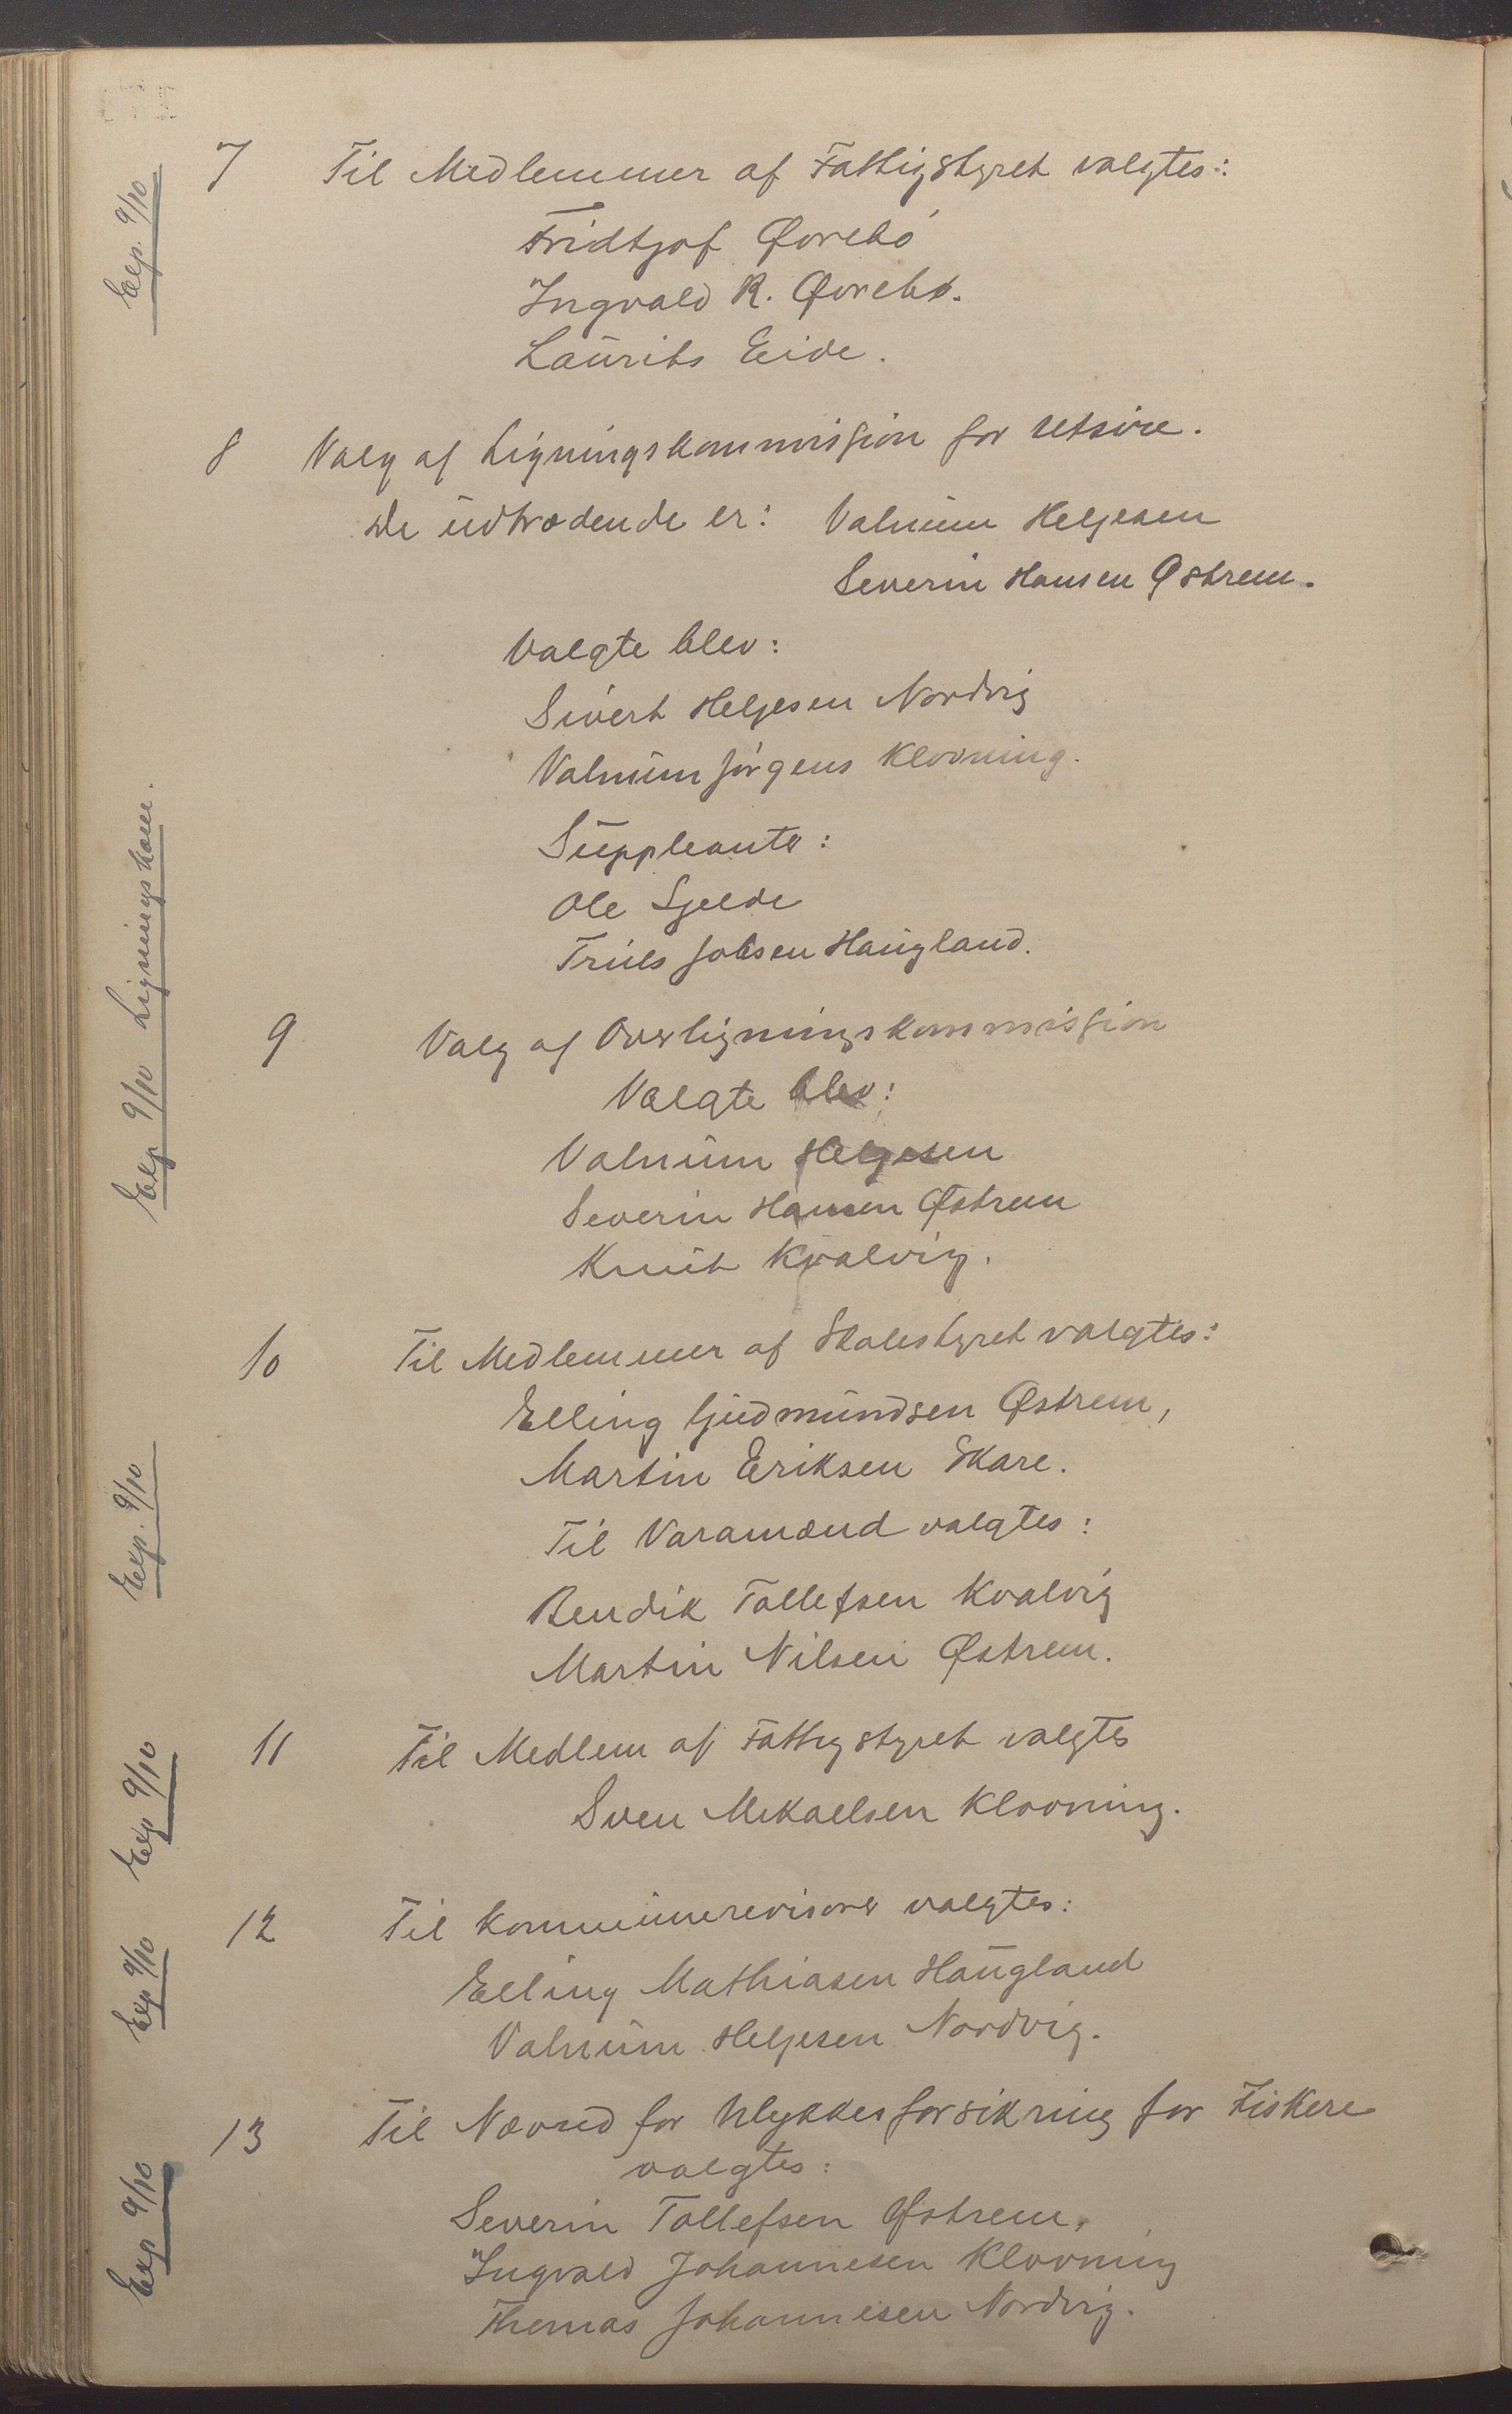 7 Til Medlemmer af Fattigstyret valgtes:
Fridtjof Øvrebø
Ingvald R. Øvrebø.
Laurits Eide.
Exp. 9/10
8 Valg af Ligningskommission for Utsire.
De udtrædende er: Valnum Helgesen
Severin Hansen Østrem.
Valgte blev:
Sivert Helgesen Nordvig
Valnum Jørgens Klovning.
Suppleanter:
Ole Sjelde
Truls Jobsen Haugland.
Exp 9/10 Ligningskom.
9 Valg af Overligningskommission
Valgte blev:
Valnum Helgesen
Severin Hansen Østrem
Knut Kvalvig.
10 Til Medlemmer af Skolestyret valgtes:
Elling Gudmundsen Østrem,
Martin Eriksen Skare.
Til Varamænd valgtes:
Bendik Tollefsen Kvalvig
Martin Nilsen Østrem.
Exp. 9/10
11 Til Medlem af Fattigstyret valgtes
Sven Mikaelsen Klovning.
Exp 9/10
12 Til Kommunerevisorer valgtes:
Elling Mathiasen Haugland
Valnum Helgesen Nordvig.
Exp 9/10
13 Til Nævnd for Ulykkesforsikring for Fiskere
valgtes:
Severin Tollefsen Østrem,
Ingvald Johannesen Klovning
Thomas Johannesen Nordvig.
Exp 9/10